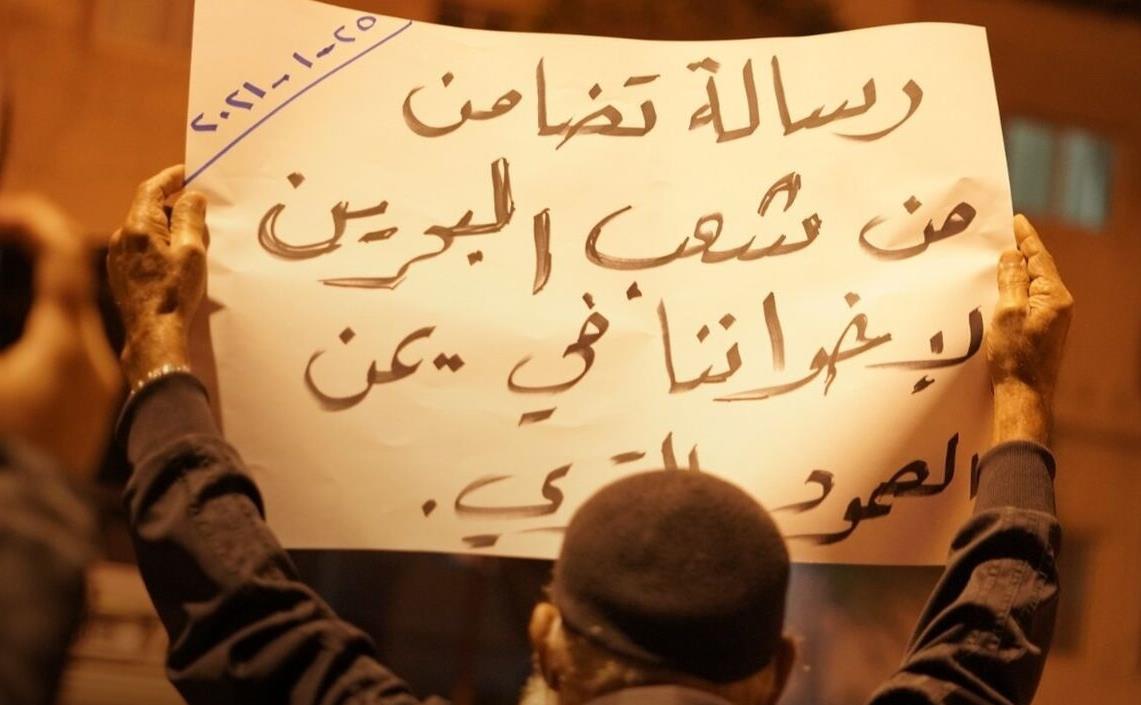 ٢٥-١-٢٠٢١
رسالة تضامن
من شعب البحرين
لإخواننا في يمن
الصمود